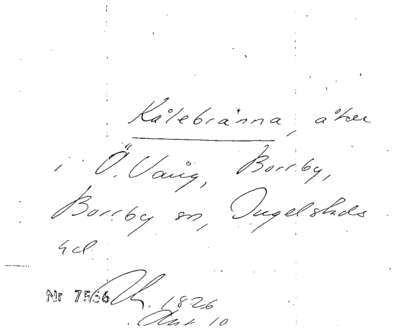 Kålebränna, åker
i Ö. Vång, Borrby,
Borrby sn, Ingelstads
hd
Nr 7566
1826